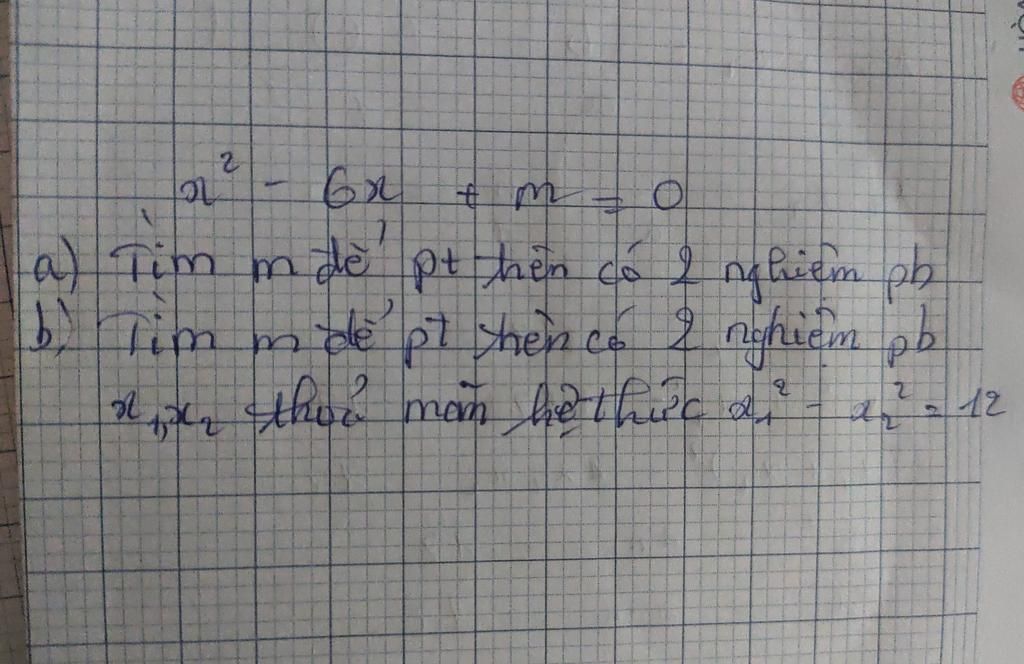 x² - 6x + m = 0
a) Tìm m để pt trên có 2 nghiệm pb
b) Tìm m để pt trên có 2 nghiệm pb
x₁, x₂ thoả mãn hệ thức x₁² - x₂² = 12